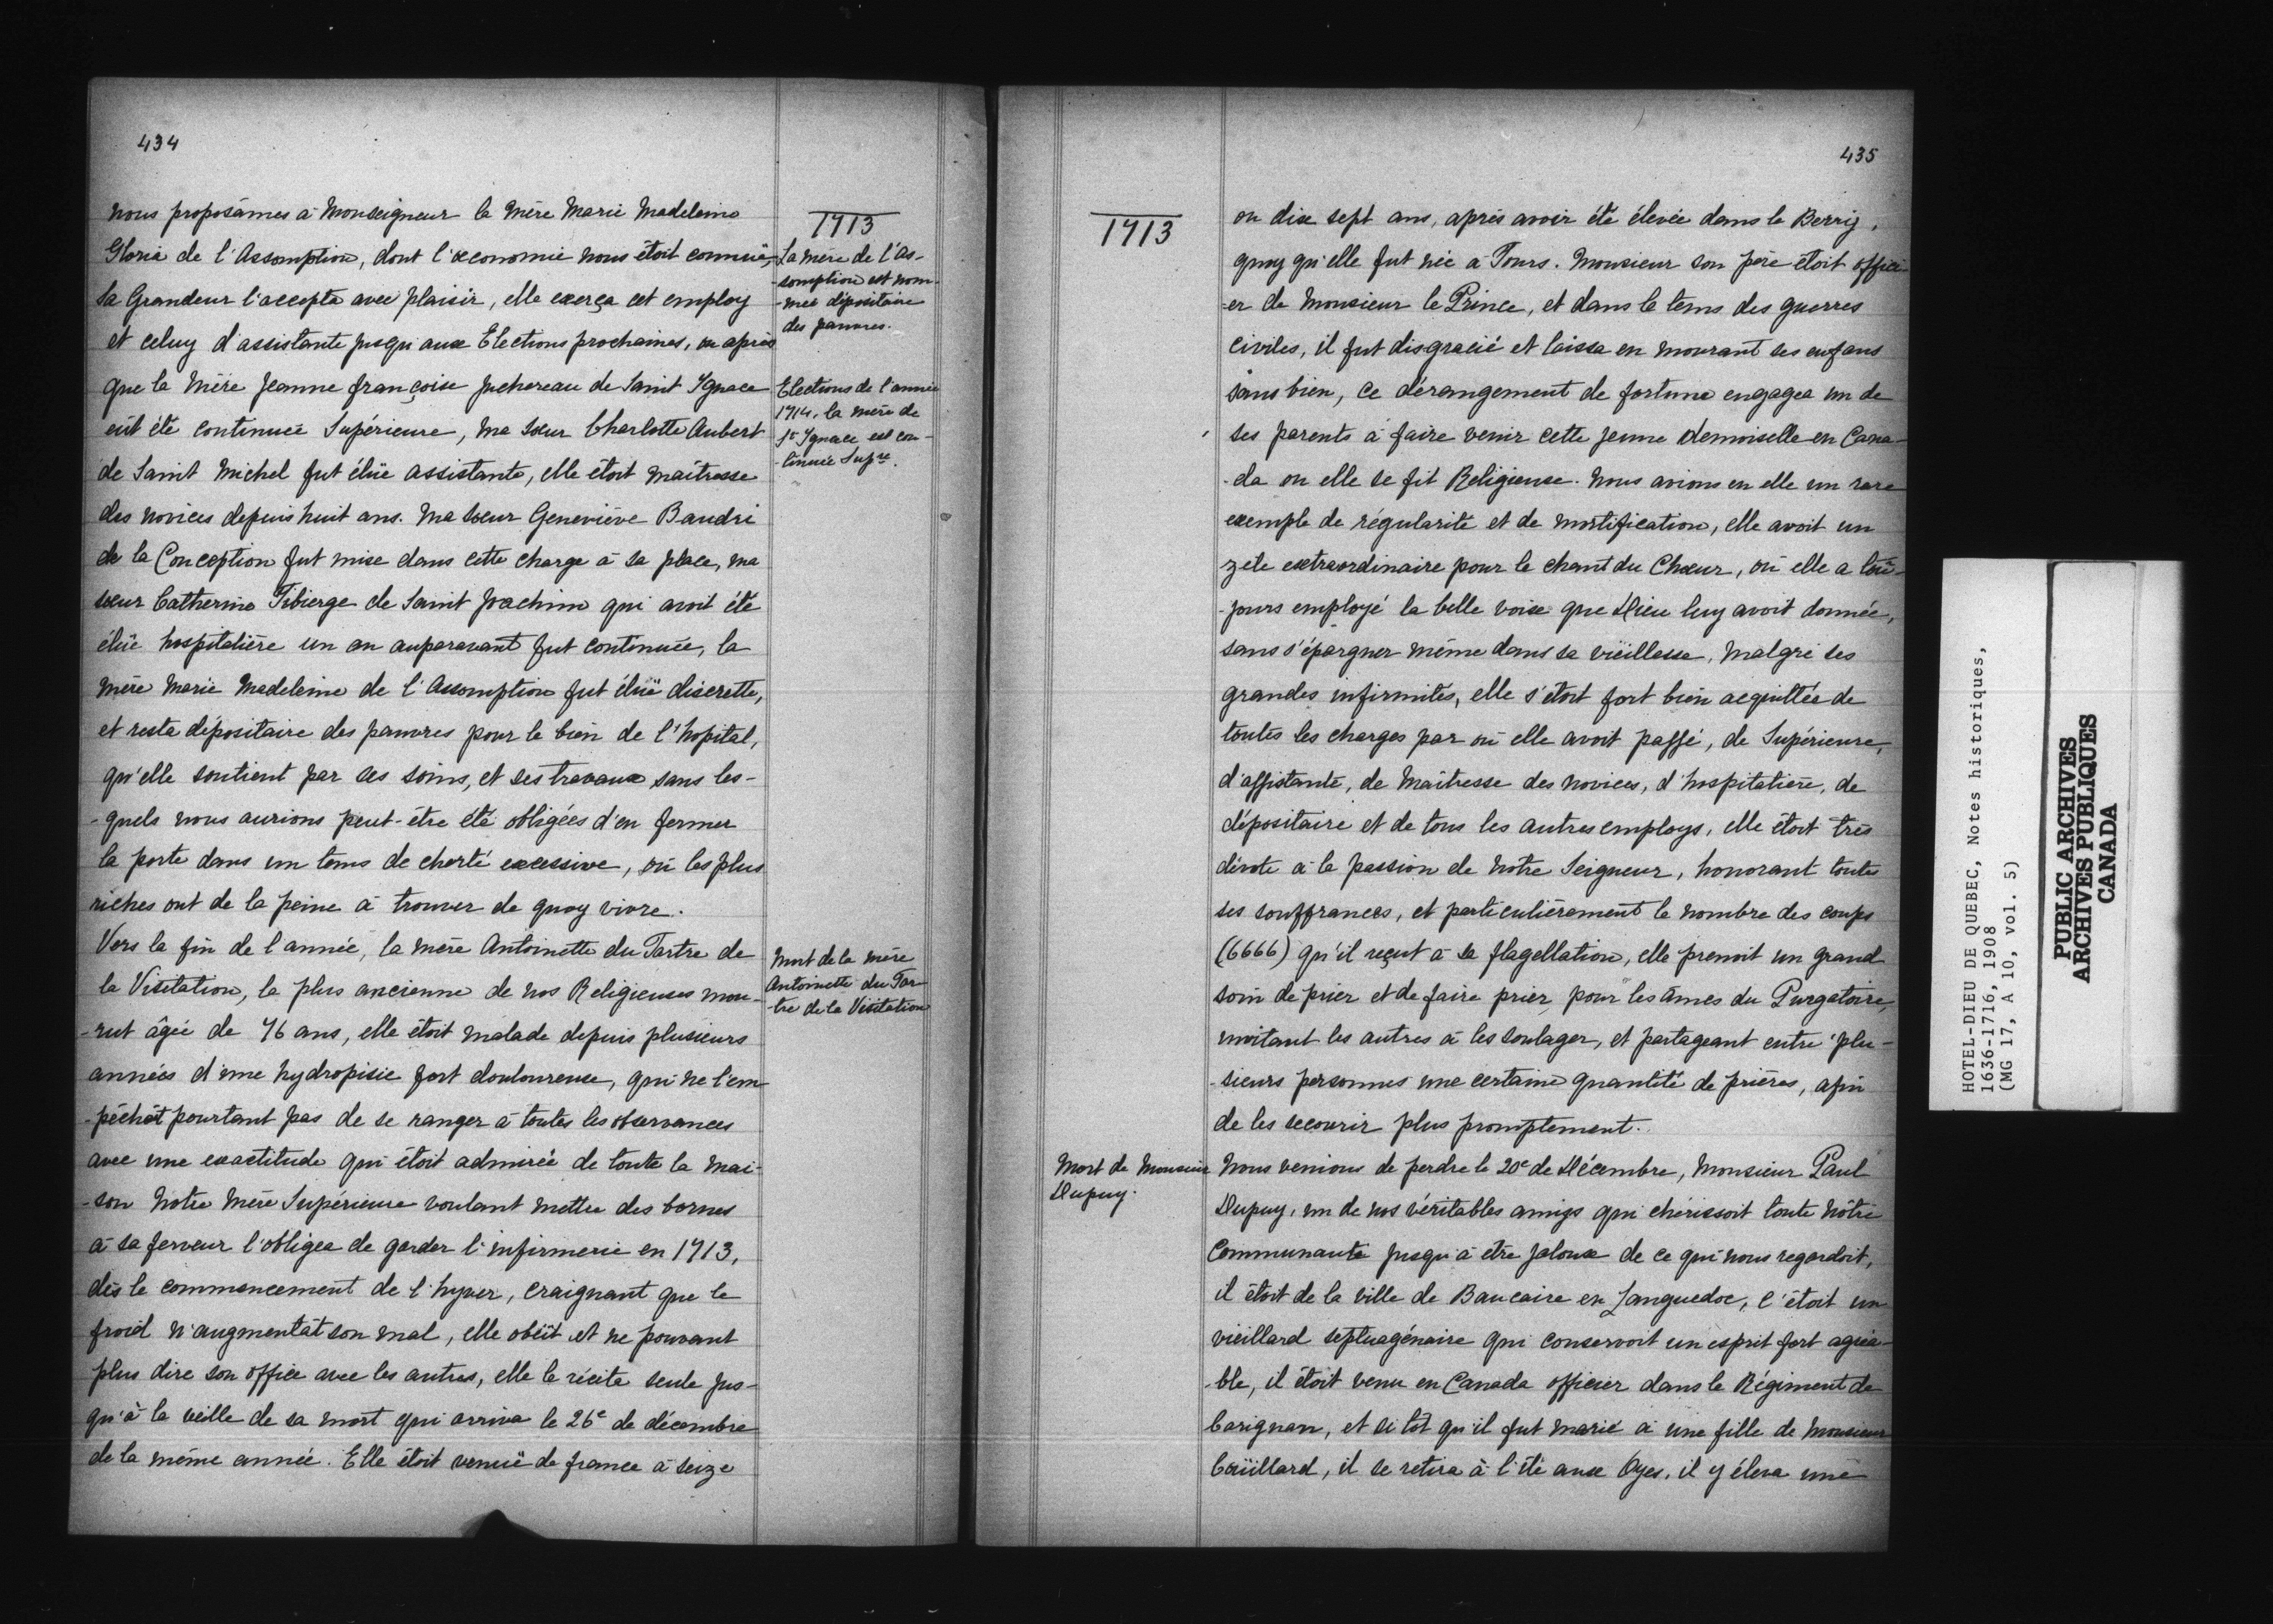 434
nous proposâmes à Monseigneur la Mère Marie Madeleine
Gloria de l'Assomption, dont l'œconomie nous étoit connuë,
Sa Grandeur l'accepta avec plaisir, elle exerça cet employ
et celuy d'assistante jusqu'aux Elections prochaines, ou après
que la Mère Jeanne françoise Juchereau de Saint Ygnace
eût été continuée Supérieure, ma Sœur Charlotte Aubert
de Saint Michel fut élüe assistante, elle étoit Maîtresse
des novices depuis huit ans. Ma sœur Geneviève Baudri
de la Conception fut mise dans cette charge à sa place, ma
sœur Catherine Tibierge de Saint Joachim qui avoit été
élüe hospitalière un an auparavant fut continuée, la
Mère Marie Madeleine de l'Assomption fut élüe discrette,
et resta dépositaire des pauvres pour le bien de l'hopital,
qu'elle soutient par ses soins, et ses travaux sans les-
-quels nous aurions peut-être été obligées d'en fermer
la porte dans un tems de cherté excessive, où les plus
riches ont de la peine à trouver de quoy vivre.
Vers la fin de l'année, la Mère Antoinette du Tartre de
la Visitation, la plus ancienne de nos Religieuses mou-
-rut âgée de 76 ans, elle étoit malade depuis plusieurs
années d'une hydropisie fort douloureuse, qui ne l'em
-pêchât pourtant pas de se ranger à toutes les observances
avec une exactitude qui étoit admirée de toute la Mai-
-son Notre Mère Supérieure voulant mettre des bornes
à sa ferveur l'obligea de garder l'infirmerie en 1713,
dès le commencement de l'hyver, craignant que le
froid n'augmentât son mal, elle obéït et ne pouvant
plus dire son office avec les autres, elle le récita seule jus-
qu'à la veille de sa mort qui arriva le 26e de décembre
de la même année. Elle étoit venuë de france à seize
1713
La mère de l'As-
-somption est nom-
-mée dépositaire
des pauvres.
Elections de l'année
1714, la mère de
St Ygnace est con-
-tinuée Supre.
Mort de la mère
Antoinette du Tar
-tre de la Visitation
435
1713
ou dix sept ans, après avoir été élevée dans le Berry,
quoy qu'elle fut née à Tours. Monsieur son père étoit offici
-er de Monsieur le Prince, et dans le tems des guerres
civiles, il fut disgracié et laissa en mourant ses enfans
sans bien, ce dérangement de fortune engagea un de
ses parents à faire venir cette jeune demoiselle en Cana-
-da ou elle se fit Religieuse. Nous avions en elle un rare
exemple de régularité et de mortification, elle avoit un
zele extraordinaire pour le chant du Chœur, où elle a toû-
-jours employé la belle voix que Dieu luy avoit donnée,
sans s'épargner même dans sa viëillesse, malgré ses
grandes infirmités, elle s'étoit fort bien acquittée de
toutes les charges par où elle avoit passé, de Supérieure,
d'assistante, de Maîtresse des novices, d'hospitalière, de
dépositaire et de tous les autres employs, elle étoit très
dévote à la passion de Notre Seigneur, honorant toutes
ses souffrances, et particulièrement le nombre des coups
(6666) qu'il reçut à sa flagellation, elle prenoit un grand
soin de prier et de faire prier pour les âmes du Purgatoire,
invitant les autres à les soulager, et partageant entre plu-
-sieurs personnes une certaine quantité de prières, afin
de les secourir plus promptement.
Mort de Monsieur
Dupuy.
Nous venions de perdre le 20e de Décembre, Monsieur Paul
Dupuy, un de nos véritables amys qui chérissoit toute nôtre
Communauté jusqu'à être jaloux de ce qui nous regardoit,
il étoit de la ville de Baucaire en Languedoc, c'étoit un
vieillard septuagénaire qui conservoit un esprit fort agréa-
-ble, il étoit venu en Canada officier dans le Régiment de
Carignan, et si tôt qu'il fut marié à une fille de Monsieur
Coüillard, il se retira à l'île aux Oyes, il y éleva une
HOTEL-DIEU DE QUEBEC, Notes historiques,
1636-1716, 1908
(MG 17, A 10, vol. 5)
PUBLIC ARCHIVES
ARCHIVES PUBLIQUES
CANADA